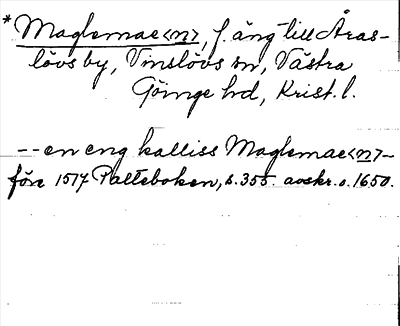 * Maglemae<n>, f. äng till Åras-
lövs by, Vinslövs sn, Västra
Göinge hd, Krist. l.
-- en eng kalliss Maglemae<n> --
före 1517 Palteboken, s. 355. avskr. o. 1650.